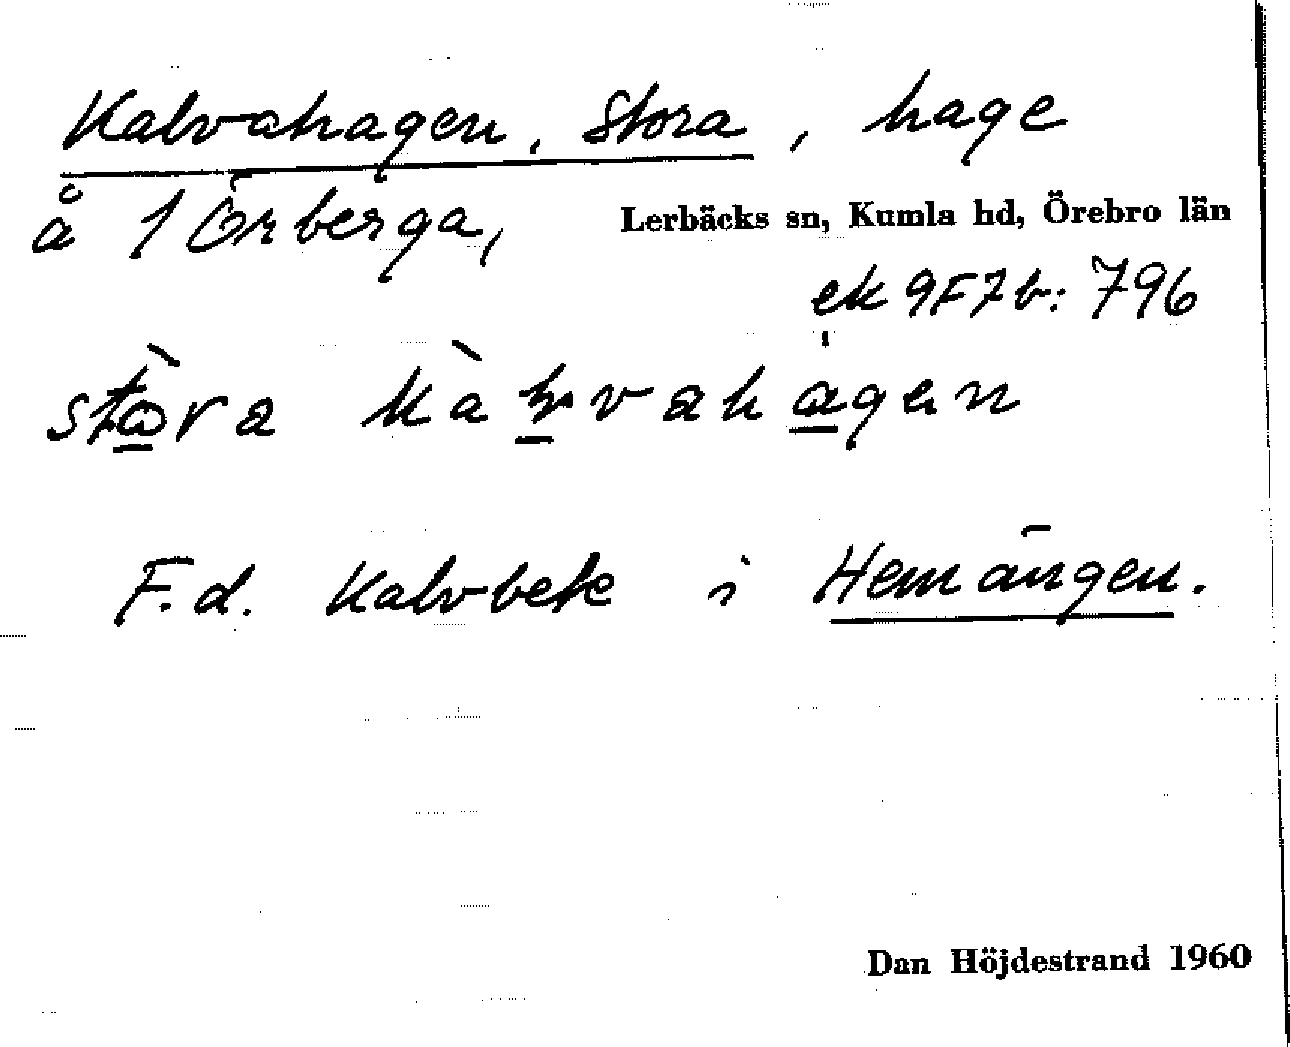 Kalvahagen, Stora, hage
å 1 Örberga, Lerbäcks sn, Kumla hd, Örebro län
ek 9F7b: 796
stora kalvahagen
F.d. Kalvbete i Hemängen.
Dan Höjdestrand 1960